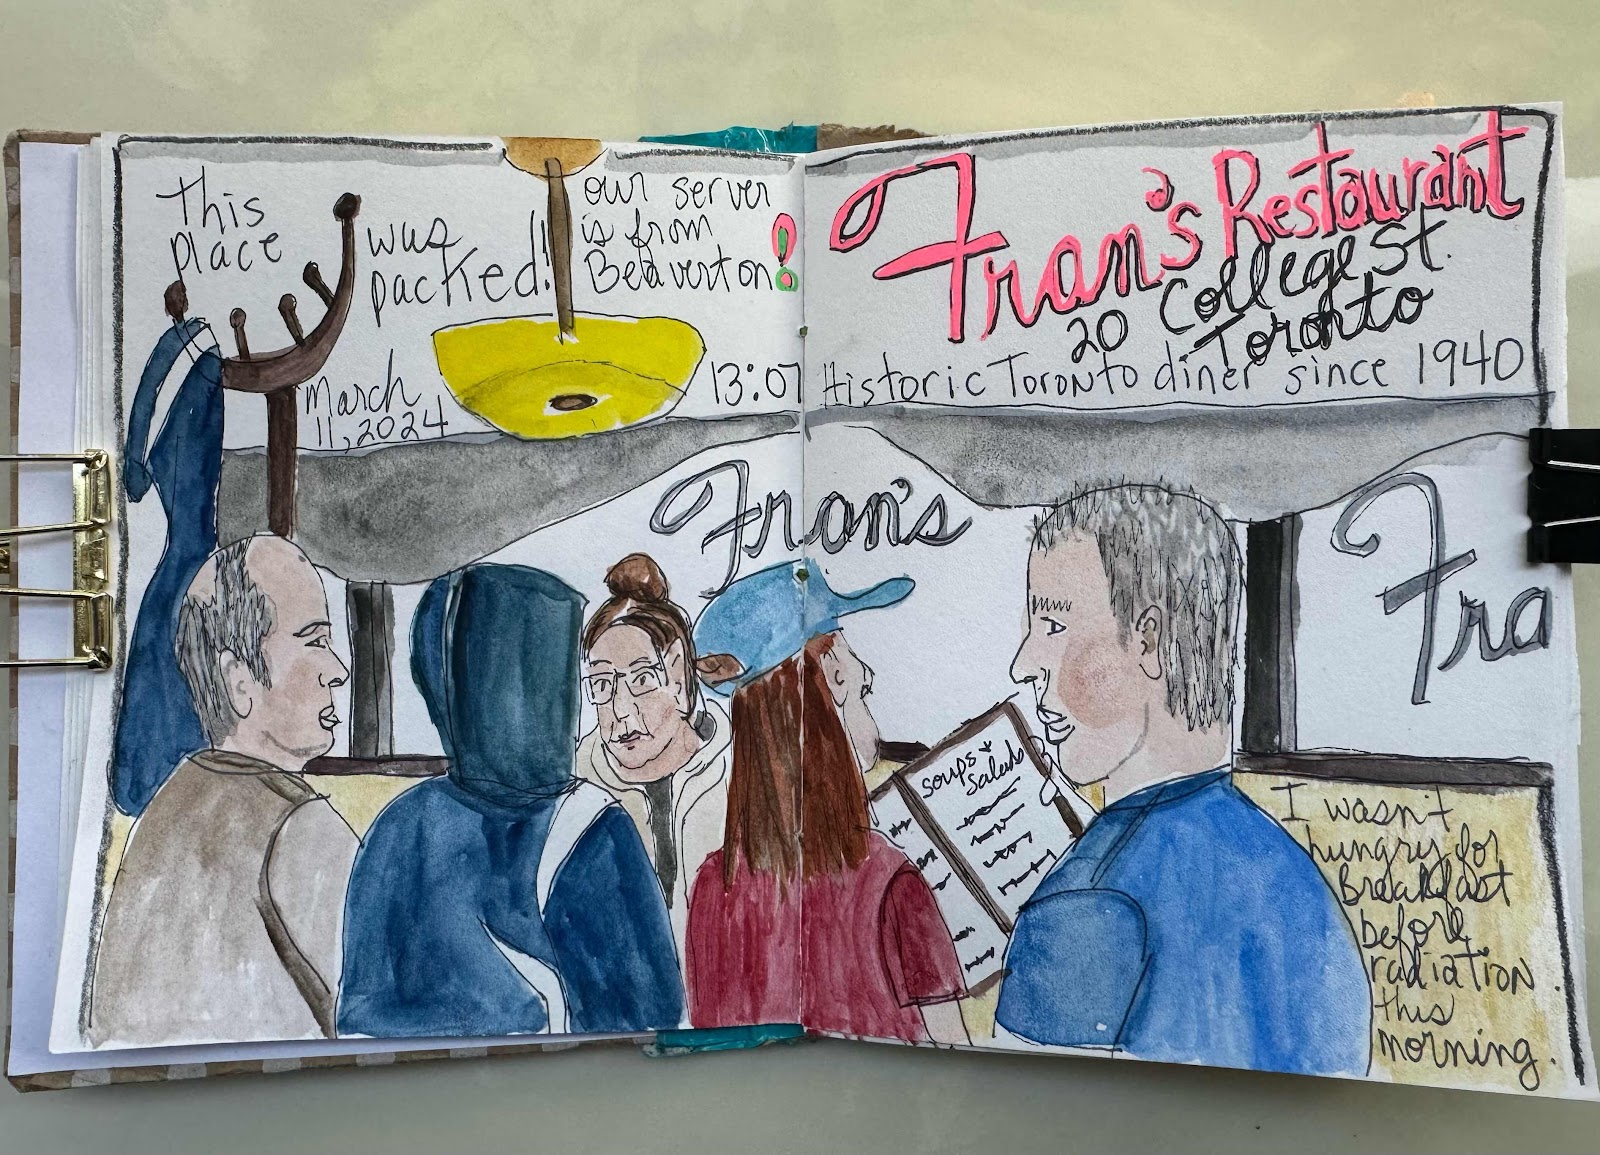 This
place
was
packed!!
our server
is from
Beaverton!
March
11, 2024
13:07
Fran's Restaurant
20 College St.
Toronto
Historic Toronto diner since 1940
Fran's
Fra
soups +
salads
I wasn't
hungry for
Breakfast
before
radiation
this
morning.